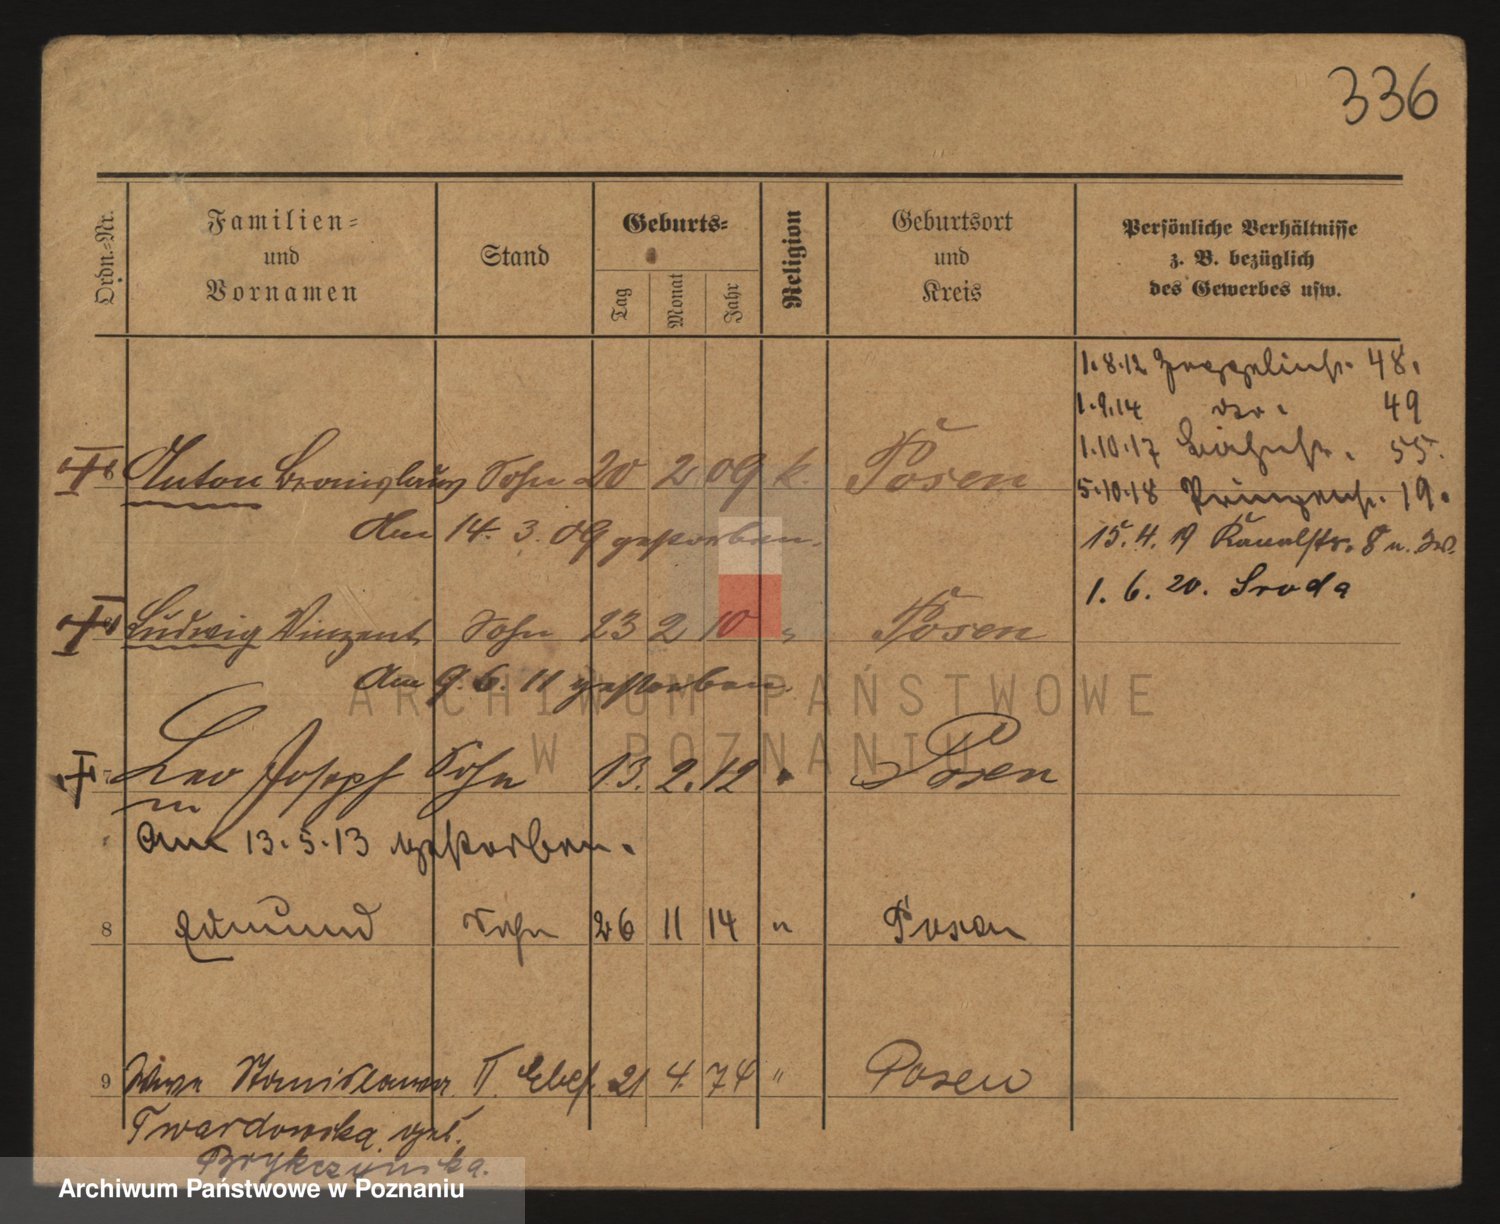 336
Ordn.-Nr.
Familien-
und
Vornamen
Stand
Geburts-
Tag
Monat
Jahr
Religion
Geburtsort
und
Kreis
Persönliche Verhältnisse
z. B. bezüglich
des Gewerbes usw.
1.8.12 Zeppelinstr. 48.
1.9.14 49
1.10.17 55.
5.10.18 Prinzenstr. 19.
15.4.19 Kanalstr. 8 u.
1.6.20. Sroda
Anton Bronislaus Sohn 20 2 09 k. Posen
Am 14. 3. 09 gestorben.
Ludwig Vinzent Sohn 23 2 10 " Posen
Am 9. 6. 11 gestorben.
7 Leo Joseph Sohn 13. 2. 12 " Posen
Am 13.5.13 gestorben.
8 Edmund Sohn 26 11 14 " Posen
9 Stanislawa II. Ehefr. 21 4 74 " Posen
Twardowska geb.
Brykczynska.
ARCHIWUM PAŃSTWOWE
W POZNANIU
Archiwum Państwowe w Poznaniu